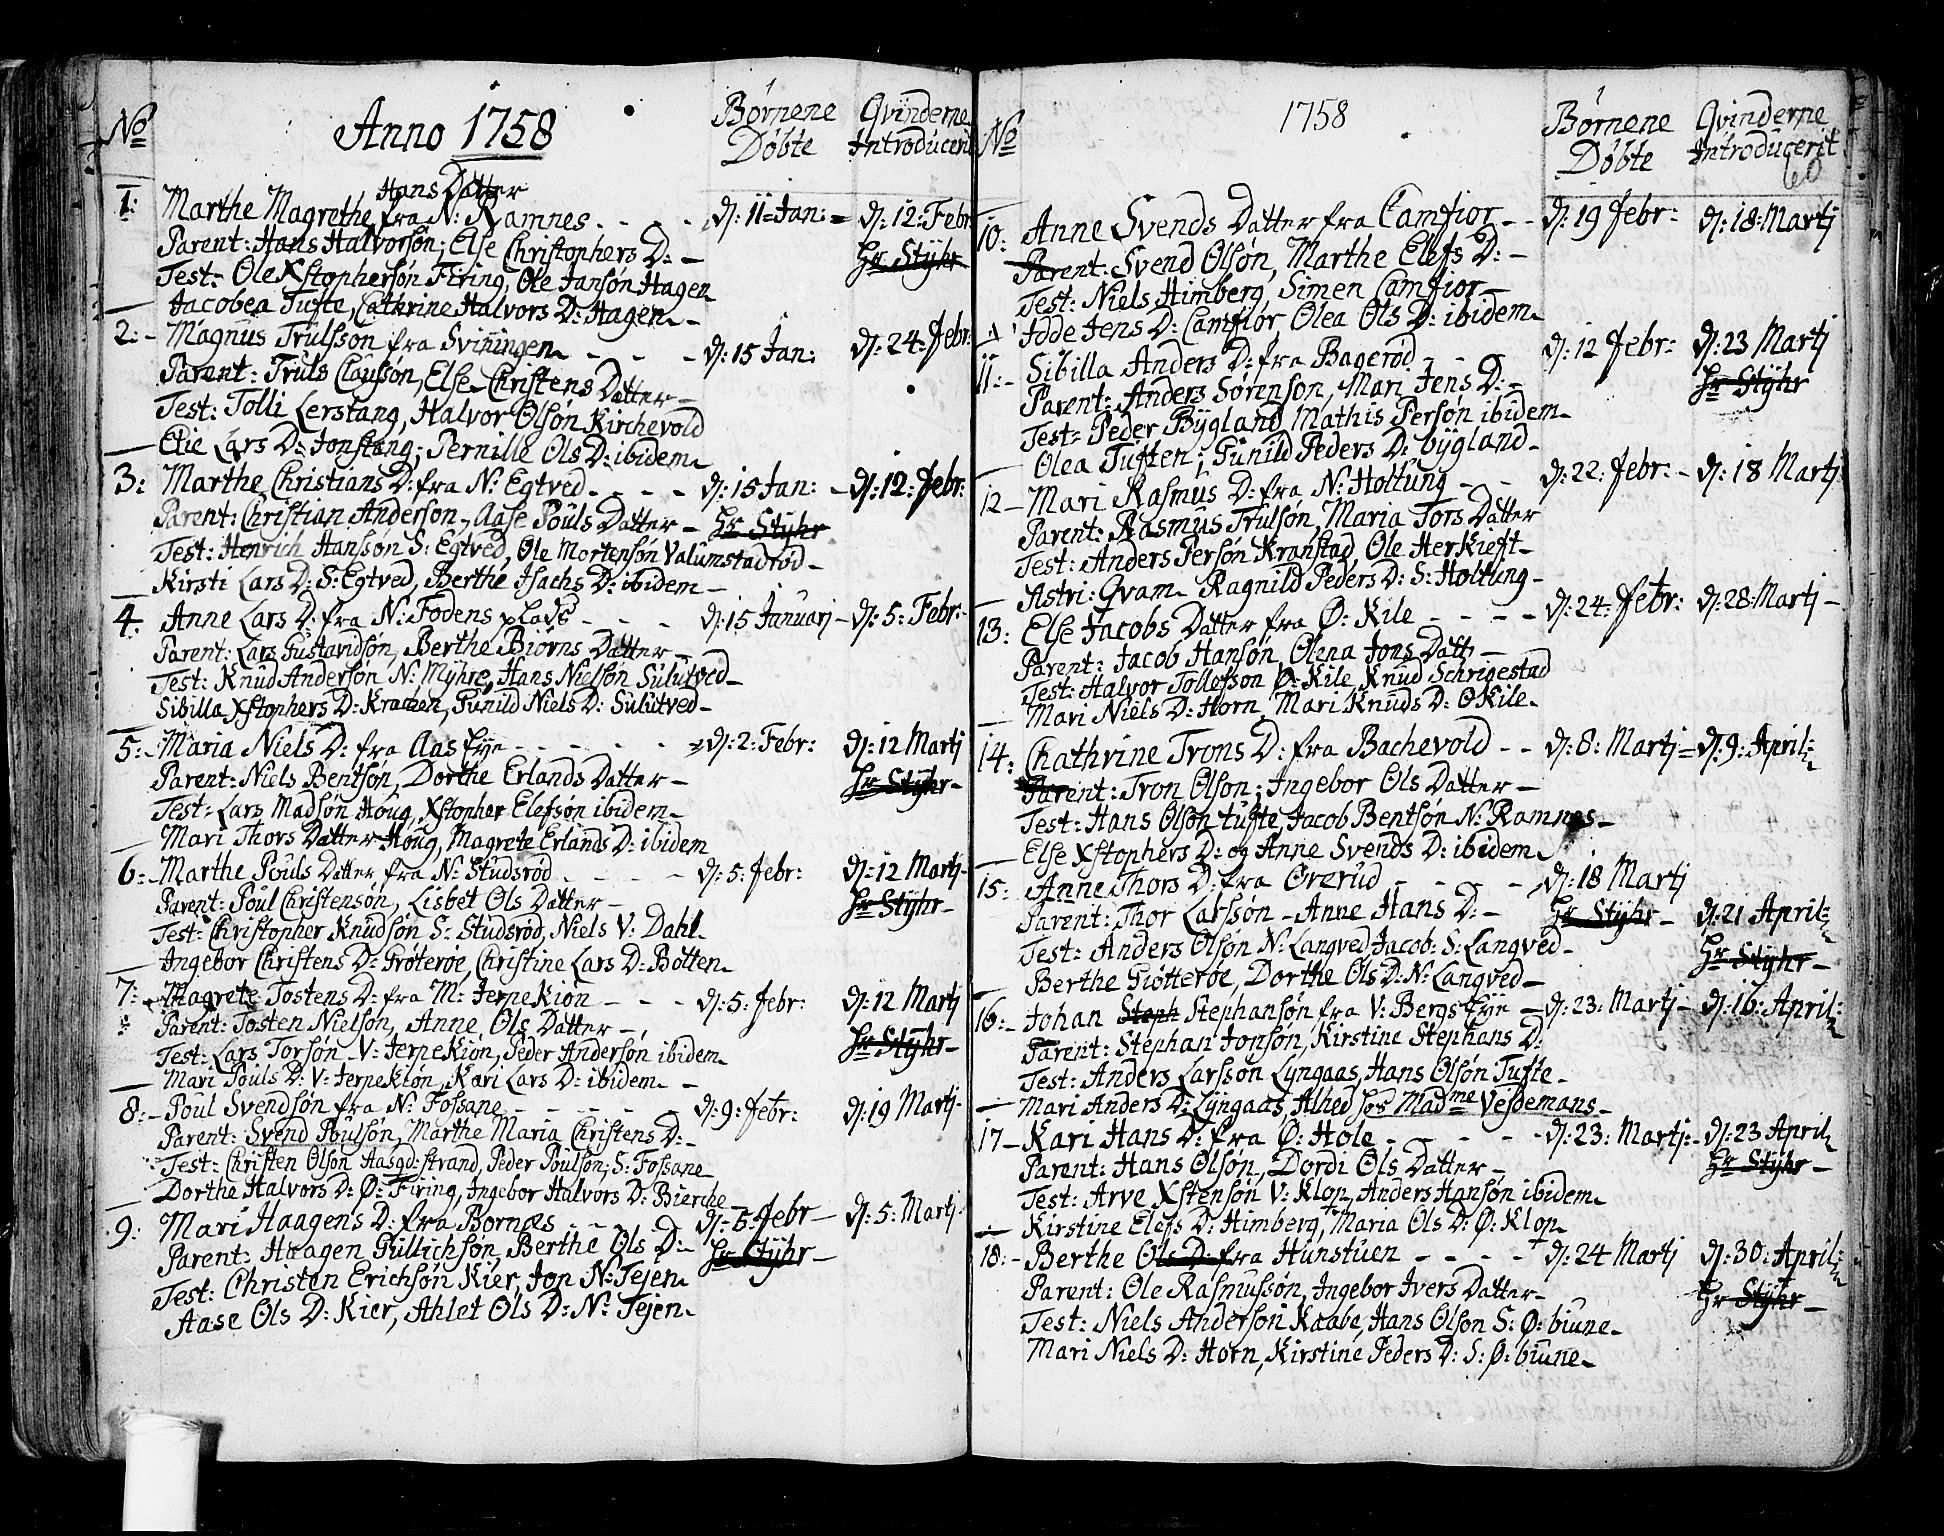 No Anno 1758 Børnene Døbte Qvinderne Introducerit
Hans Datter
1: Marthe Magrethe fra N: Ramnes - - - d: 11 Jan: = d: 12: Febr
Parent: Hans Halvorsøn; Else Christophers D: - Hr Stÿhr
Test: Ole Xstophersøn Firing, Ole Jansøn Hagen
Jacobea Tufte, Cathrine Halvors D: Hagen
2: Magnus Trulsson fra Sviningen - - - d: 15 Jan: d: 24: Febr:
Parent: Truls Claussøn, Else Christens Datter -
Test: Tolli Lerstang, Halvor Olsøn Kirchevold
Elie Lars D: Jonstang; Pernille Ols D: ibidem
3: Marthe Christians D: fra N: Egtved - - - - d: 15 Jan: - d: 12: Febr:
Parent: Christian Anderson, Aase Pouls Datter - Hr Stÿhr
Test: Henrich Hanssøn S: Egtved, Ole Mortensøn Valumstadrød -
Kirsti Lars D: S: Egtved, Berthe Isachs D: ibidem -
4: Anne Lars D: fra N: Fodens plads - - - d: 15 Januarj - d: 5: Febr: -
Parent: Lars Gustavdsøn, Berthe Biørns Datter -
Test: Knud Andersøn N: Mÿhre, Hans Nielsøn Sulutved -
Sibilla Xstophers D: Krachen, Gunild Niels D: Sulutved -
5: Maria Niels D: fra Aas Eÿe - - - - - d: 2: Febr: d: 12 Martj
Parent: Niels Bentsøn, Dorthe Erlands Datter - Hr Stÿhr -
Test: Lars Madsøn Houg, Xstopher Elefsøn ibidem -
Mari Thors Datter Houg, Magrete Erlands D: ibidem
6: Marthe Pouls Datter fra N: Studsrød - - - - d: 5: Febr: d: 12 Martj -
Parent: Poul Christensøn, Lisbet Ols Datter - Hr Stÿhr -
Test: Christopher Knudsøn S: Studsrød, Niels V: Dahl
Ingebor Christens D: Grøterøe, Christine Lars D: Botten
7: Magrete Tostens D: fra M: Jerpekiøn - - - d: 5: Febr: d: 12 Martj
Parent: Tosten Nielsøn, Anne Ols Datter - Hr Stÿhr -
Test: Lars Torsøn V: Jerpekiøn, Peder Andersøn ibidem
Mari Pouls D: V: Jerpekiøn, Kari Lars D: ibidem -
8: Poul Svendsøn fra N: Fossane - - - - d: 9: Febr: d: 19 Martj -
Parent: Svend Poulsøn, Marthe Maria Christens D: -
Test: Christen Olsøn Aasgd:strand, Peder Poulsøn; S: Fossane
Dorthe Halvors D: Ø: Firing, Ingebor Halvors D: Bierche
9: Mari Haagens D: fra Bornæs - - - d: 5: Febr - d: 5: Martj
Parent: Haagen Gullichsøn, Berthe Ols D: Hr Stÿhr -
Test: Christen Erichsøn Kier, Jon N: Tejen
Aase Ols D: Kier, Ahlet Ols D: N: Tejen
No 1758 Børnene Døbte Qvinderne Introducerit
60
10: Anne Svends Datter fra Camfior - - d: 19 Febr: d: 18: Martj
Parent: Svend Olsøn, Marthe Elefs D: -
Test: Niels Himberg, Simen Camfior -
Idde Jens D: Camfior, Olea Ols D: ibidem
11: Sibilla Anders D: fra Bagerød - - - d: 12 Febr: d: 23 Martj
Parent: Anders Sørensøn, Mari Jens D: - Hr Stÿhr
Test: Peder Bÿgland, Mathis Persøn ibidem -
Olea Tuften; Gunild Peders D: bÿgland -
12 - Mari Rasmus D: fra N: Holtung - - d: 22: Febr: - d: 18 Martj
Parent: Rasmus Trulsøn, Maria Tors Datter
Test: Anders Persøn Kranstad, Ole Herkieft -
Astri: Qvam, Ragnild Peders D: S: Holtung -
13: Else Jacobs Datter fra Ø: Kile - - - - d: 24: Febr: d: 28: Martj -
Parent: Jacob Hansøn, Olena Jons Datt: -
Test: Halvor Tollefsson Ø: Kile, Knud Schrigestad
Mari Niels D: Horn, Mari Knuds D: Ø Kile -
14: Chathrine Trons D: fra Bachevold - - d: 8: Martj = d: 9: April:
Parent: Tron Olsøn; Ingebor Ols Datter -
Test: Hans Olsøn tufte, Jacob Bentsøn N: Ramnes -
Else Xstophers D: og Anne Svends D: ibidem
15: Anne Thors D: fra Ørerud - - - - d: 18 Martj
Parent: Thor Larssøn - Anne Hans D: - Hr Stÿhr - d: 21 April:
Test: Anders Olsøn N: Langved, Jacob: S: Langved - Hr Stÿhr -
Berthe Grøtterøe, Dorthe Ols D: N: Langved -
16: Johan Steph Stephansøn fra V: Bergs Eÿe - d: 23: Martj - d: 16: April:
Parent: Stephan Jonsøn, Kirstine Stephans D:
Test: Anders Larssøn Lyngaas, Hans Olsøn Tufte -
Mari Anders D: Lÿngaas, Alhed hos Madme Vesdemans -
17 - Kari Hans D: fra Ø: Hole - - - - d: 23: Martj: - d: 23 April
Parent: Hans Olsøn, Dordi Ols Datter - Hr Stÿhr -
Test: Arve Xstensøn V: Klop, Anders Hansøn ibidem
Kirstine Elefs D: Himberg, Maria Ols D: Ø: Klop
18: - Berthe Ols D: fra Hunstuen - - - - d: 24 Martj d: 30: April:
Parent: Ole Rasmussøn, Ingebor Ivers Datter - Hr Stÿhr -
Test: Niels Andersøn Kaabe, Hans Olsøn S: Ø: biune -
Mari Niels D: Horn, Kirstine Peders D: S: Ø: biune -